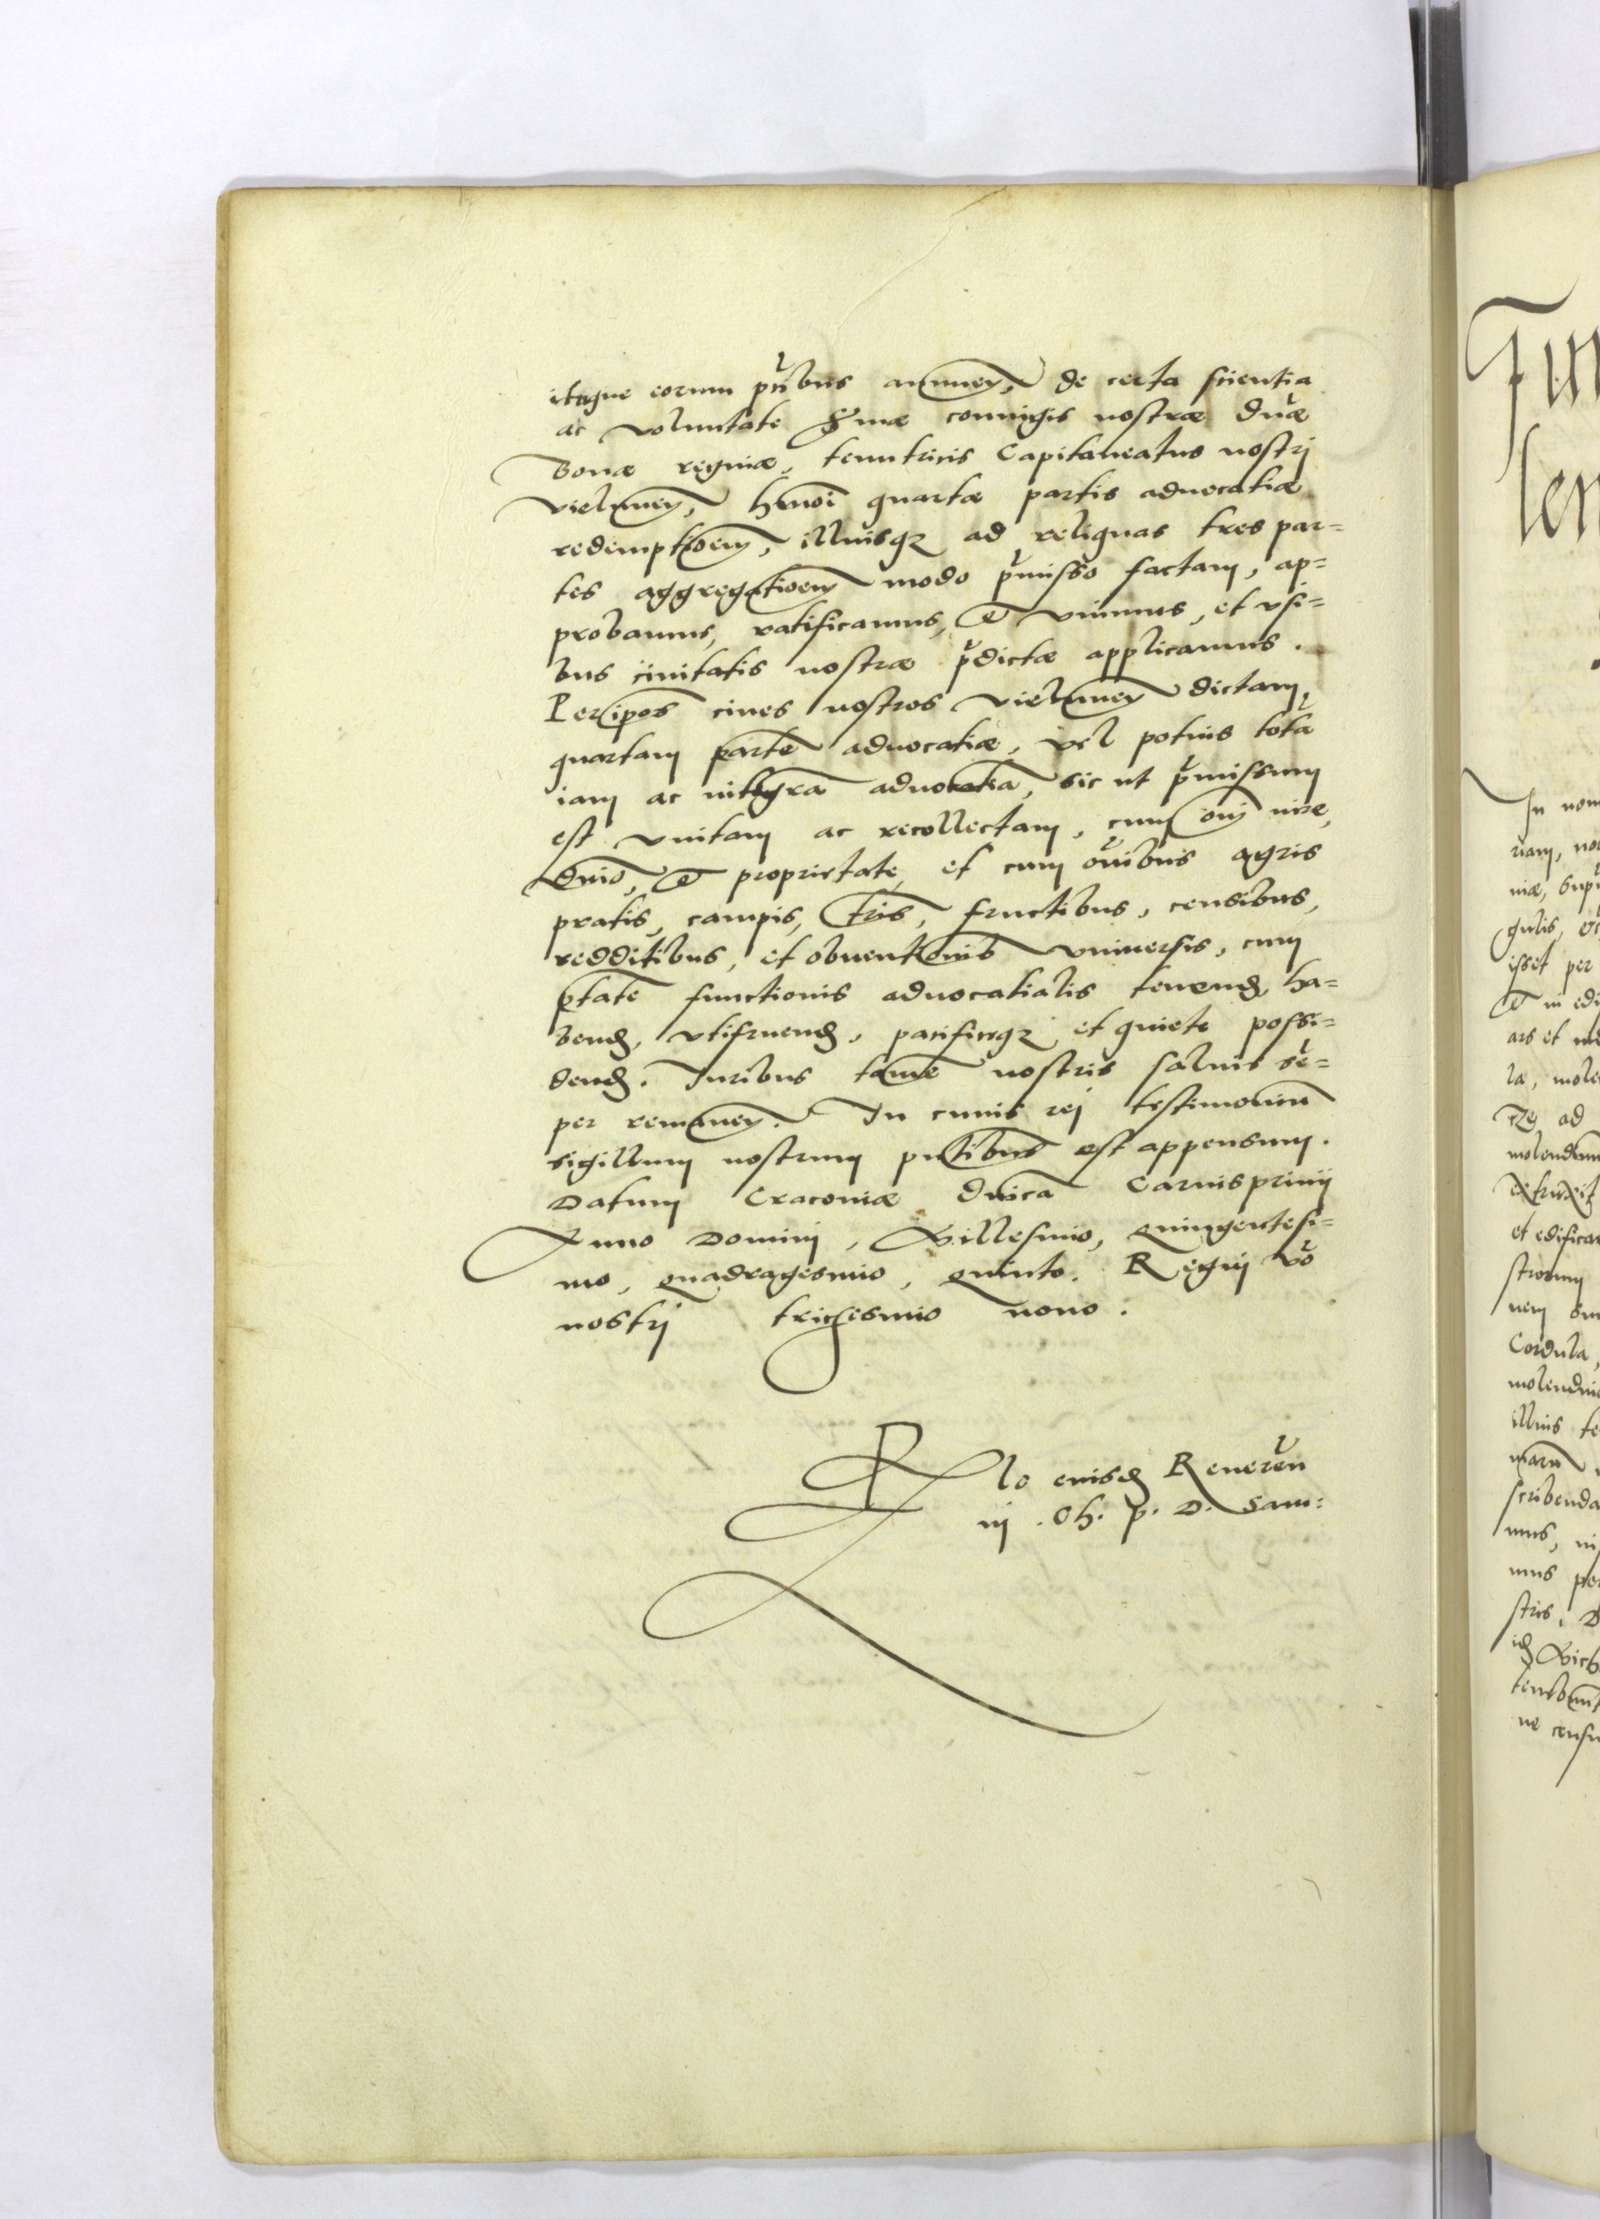 itaque eorum p̃cibus annuen, de certa scientia
ac voluntate S̃mæ coniugis nostræ Dñæ
Bonæ reginæ, tenutricis Capitaneatus nostrj
Vielunen, hmõi quartæ partis aduocatiæ
redemptioem, illiusq; ad reliquas tres par=
tes aggregatioem modo p̃misso factam, ap=
probamus, ratificamus, et vnimus, et vsi=
bus ciuitatis nostræ p̃dictæ applicamus.
Per ip̃os ciues nostros Vielunen dictam,
quartam parte̅ aduocatiæ, vel potius totã
iam ac integrã aduocatiã, sic ut p̃missum
est vnitam ac recollectam, cum om̃j iure,
dn̅io, et proprietate, et cum om̃ibus agris
pratis, campis, tr̅is, fructibus, censibus,
redditibus, et obuentionib̅ vniuersis, cum
p̅tate functionis aduocatialis tenend, ha=
bend, vtifruend, pacificeq; et quiete possi=
dend. Iuribus tame̅ nostris saluis se̅=
per remanen. In cuius rej testimoniu̅
sigillum nostrum pn̅tibus est appensum.
Datum Cracoviæ dn̅ica Carnispriuij
Anno Dominj, Millesimo, quingentesi=
mo, quadragesimo, quinto. Regnj vo̅
nostrj trigesimo nono.
R̅lo eiusd Reueren̅
in Ch. p. D. Sam:
Fun
len
In nom
riam, no
niæ, sup
gulis, et
isset per
et in edi
ars et me
la, mole
ad
molendinu
extruxit
et edifica
strorum
nem su
Cordula,
molendin
illius te
scribenda
mus, in
mus per
stris. D
id Mich
ne censu